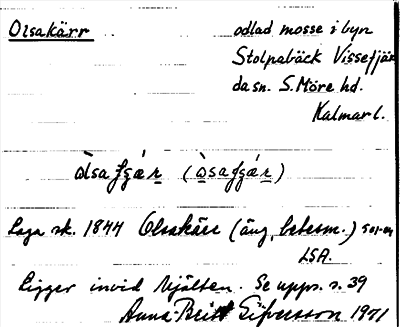 Olsakärr
odlad mosse i byn
Stolpabäck Vissefjär
da sn. S. Möre hd.
Kalmar l.
Laga sk. 1844 Olsakärr (äng, betesm.)
LSA.
Ligger invid Mjälten. Se upps. s. 39
Anna-Britt Sifversson 1971